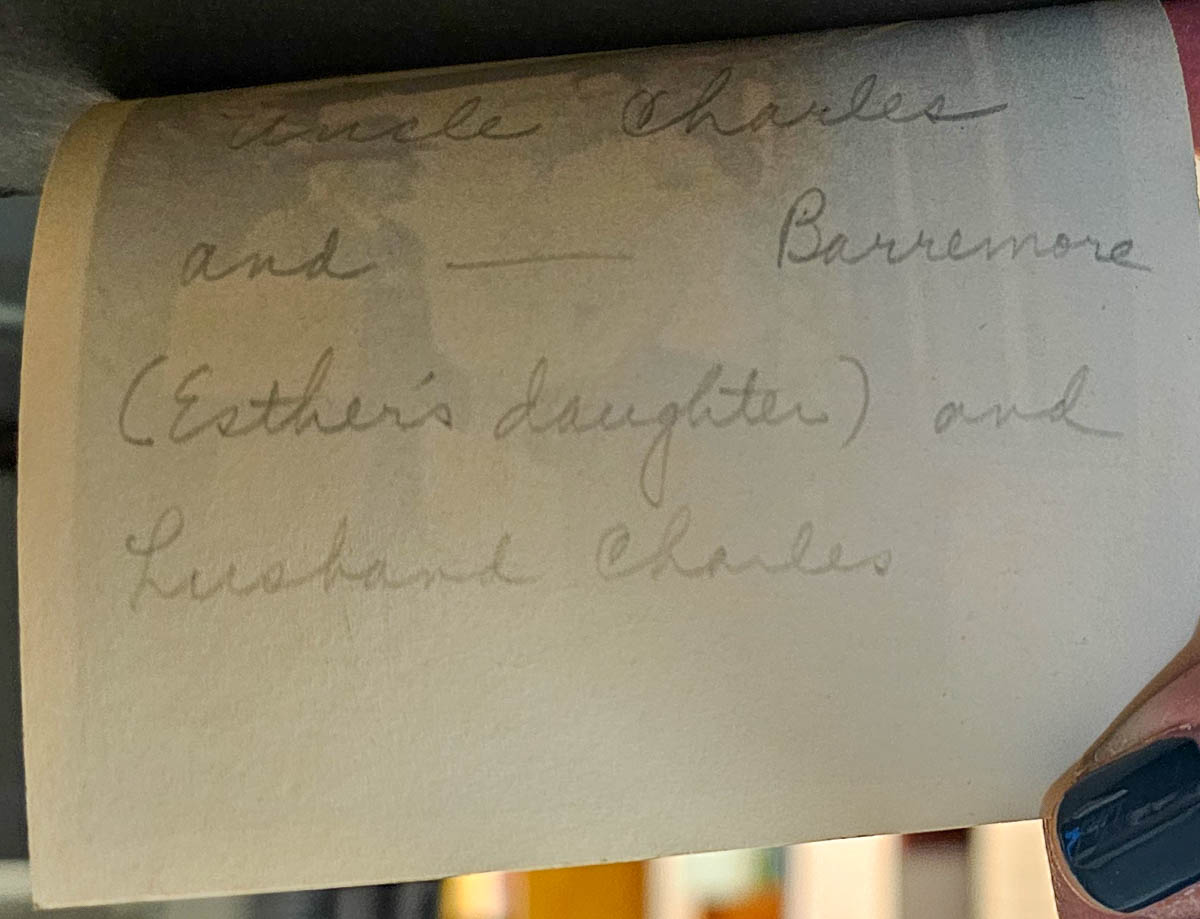 Uncle Charles
and ——— Barremore
(Esther's daughter) and
husband Charles